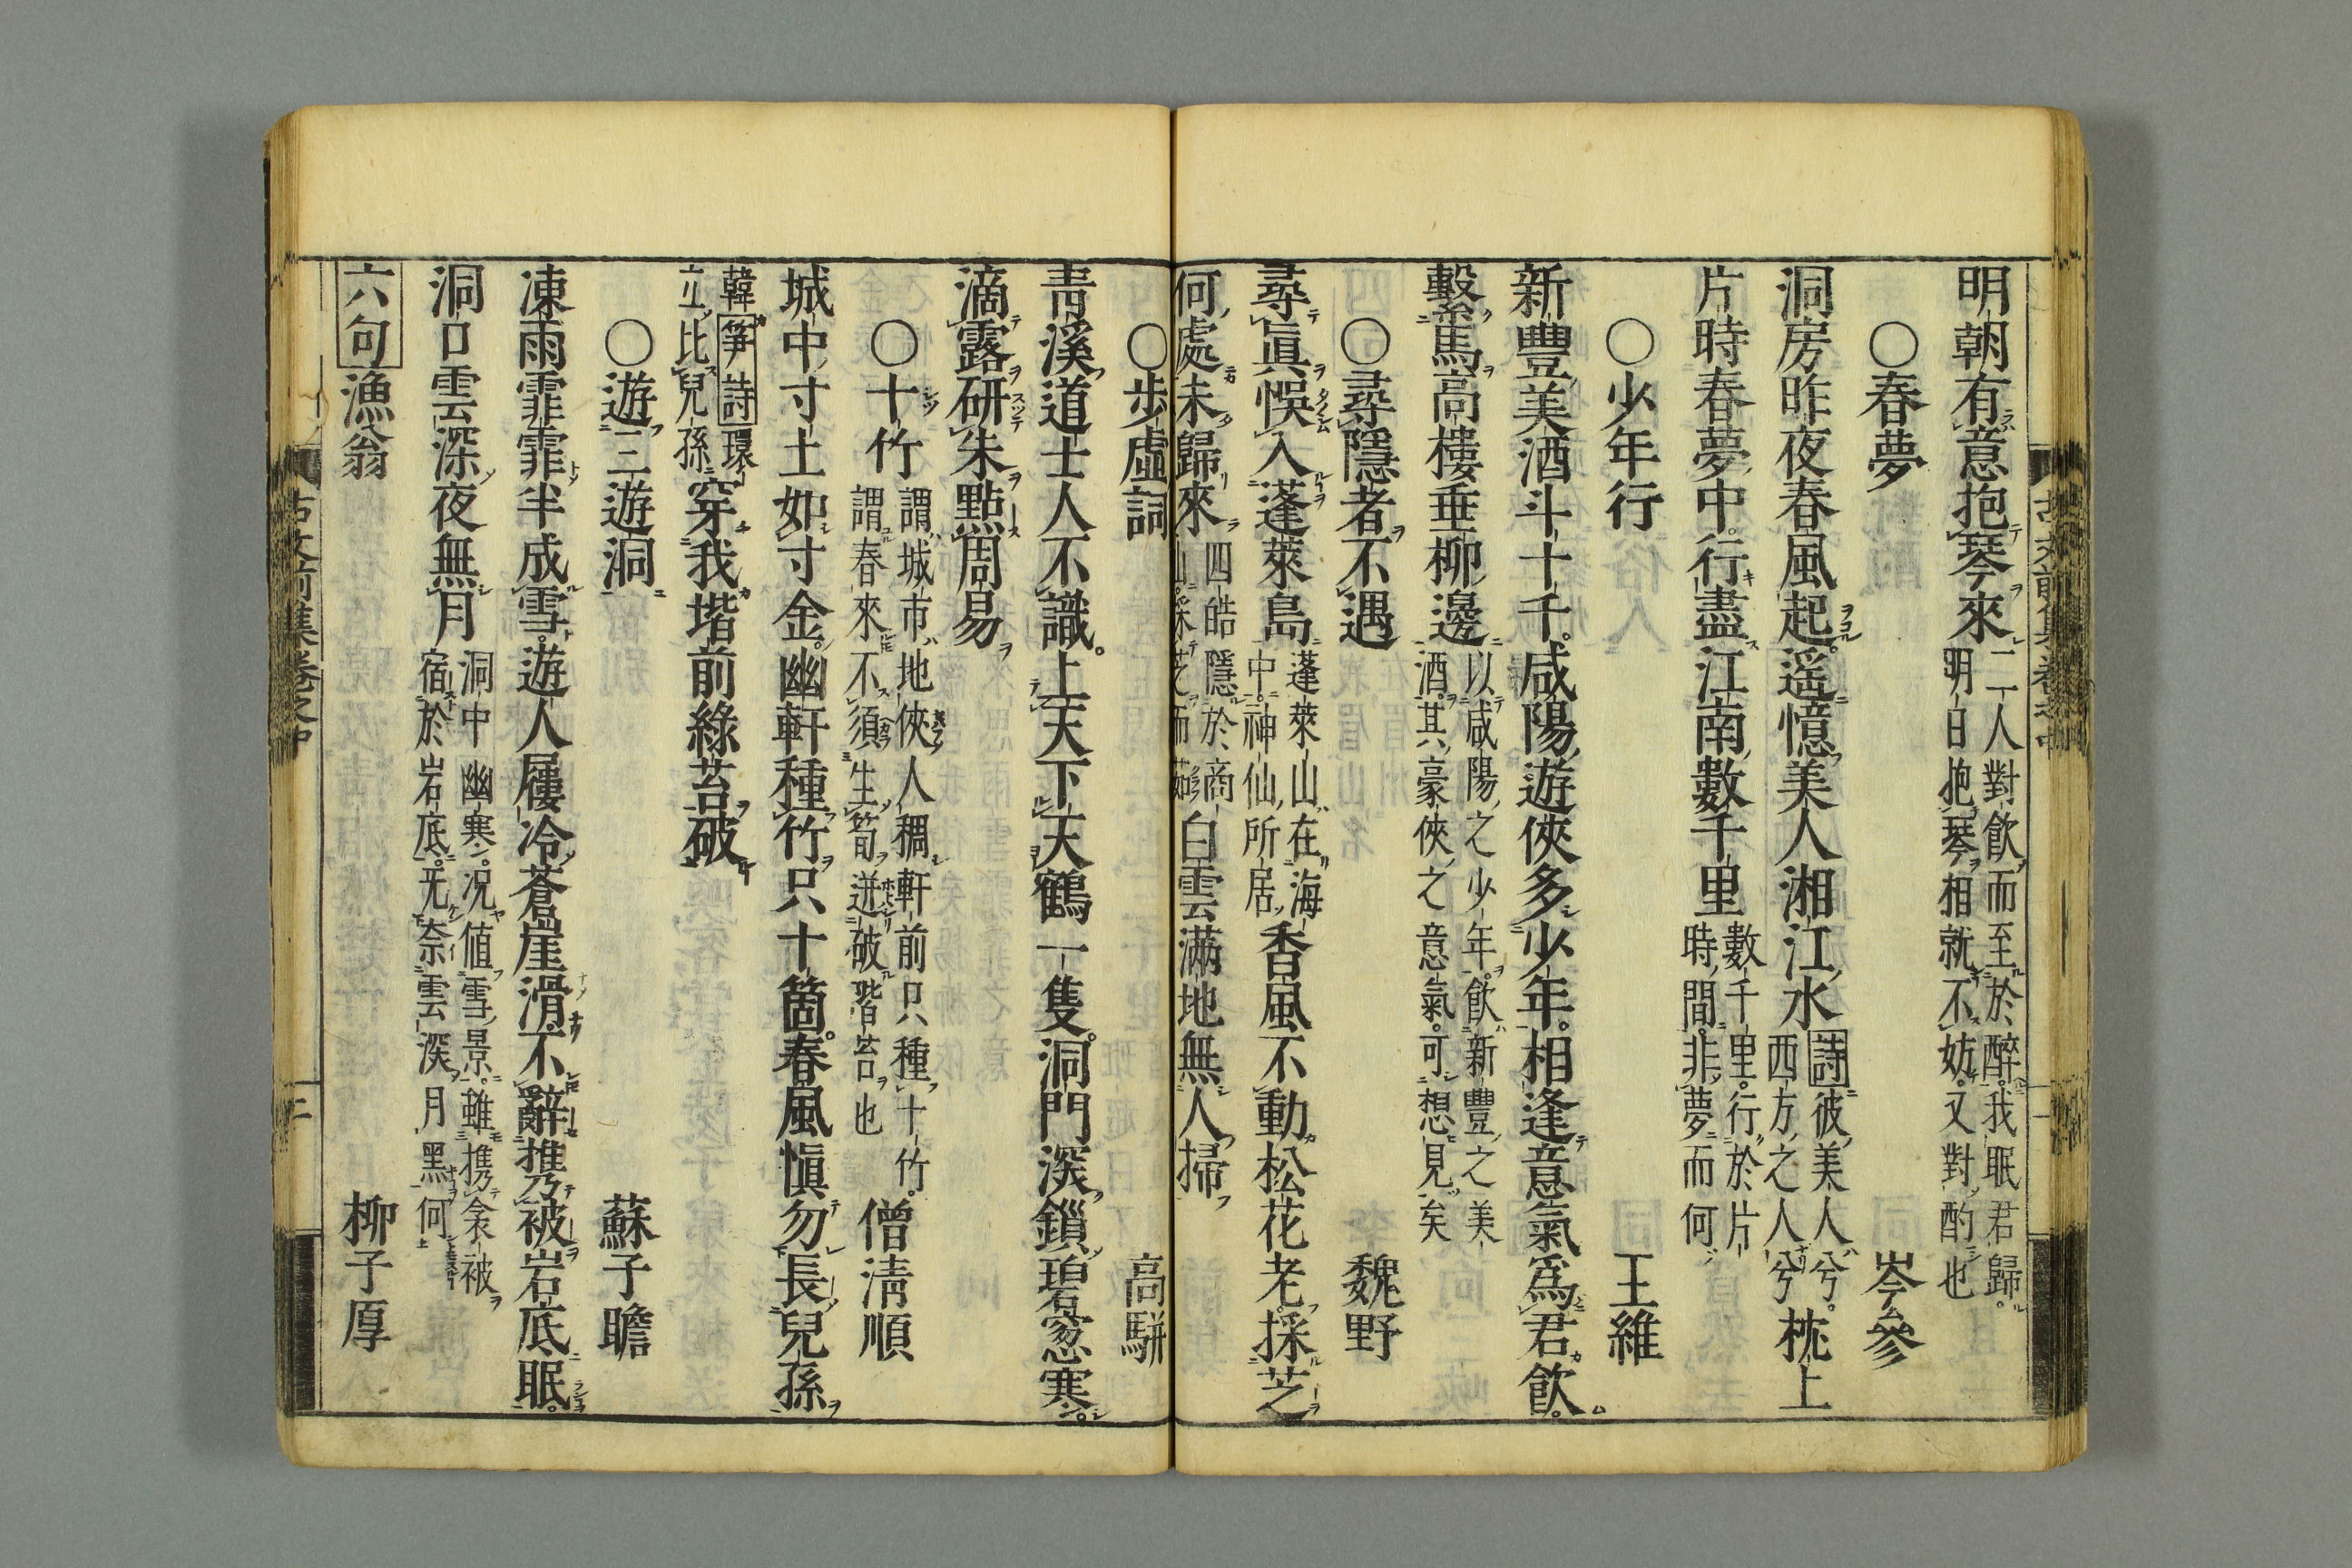 明朝有意抱琴來 二人對飲而至於醉我眠君歸
明日抱琴相就不妨又對酌也
○春夢 岑參
洞房昨夜春風起遥憶美人湘江水 詩彼美人兮
西方之人兮 枕上
片時春夢中行盡江南數千里 數千里行於片
時間非夢而何
○少年行 王維
新豐美酒斗十千咸陽遊俠多少年相逢意氣爲君飲
繫馬高樓垂柳邊 以咸陽之少年飲新豐之美
酒其豪俠之意氣可想見矣
○尋隱者不遇 魏野
尋眞悞入蓬萊島 蓬萊山在海
中神仙所居 香風不動松花老採芝
何處未歸來 四皓隱於商
山採芝而茹 白雲滿地無人掃
○步虛詞 高駢
靑溪道士人不識上天下天鶴一隻洞門深鎖碧窓寒
滴露硏朱點周易
○十竹 謂城市地俠人稠軒前只種十竹
謂春來不須生筍迸破階苔也 僧淸順
城中寸土如寸金幽軒種竹只十箇春風愼勿長兒孫
韓笋詩環
立比兒孫 穿我堦前綠苔破
○遊三遊洞 蘇子瞻
凍雨霏霏半成雪遊人屨冷蒼崖滑不辭携被岩底眠
洞口雲深夜無月 洞中幽寒况値雪景雖携衾被
宿於岩底无奈雲深月黑何
六句 漁翁 柳子厚
古文前集卷之中 一
古文前集卷之中 二